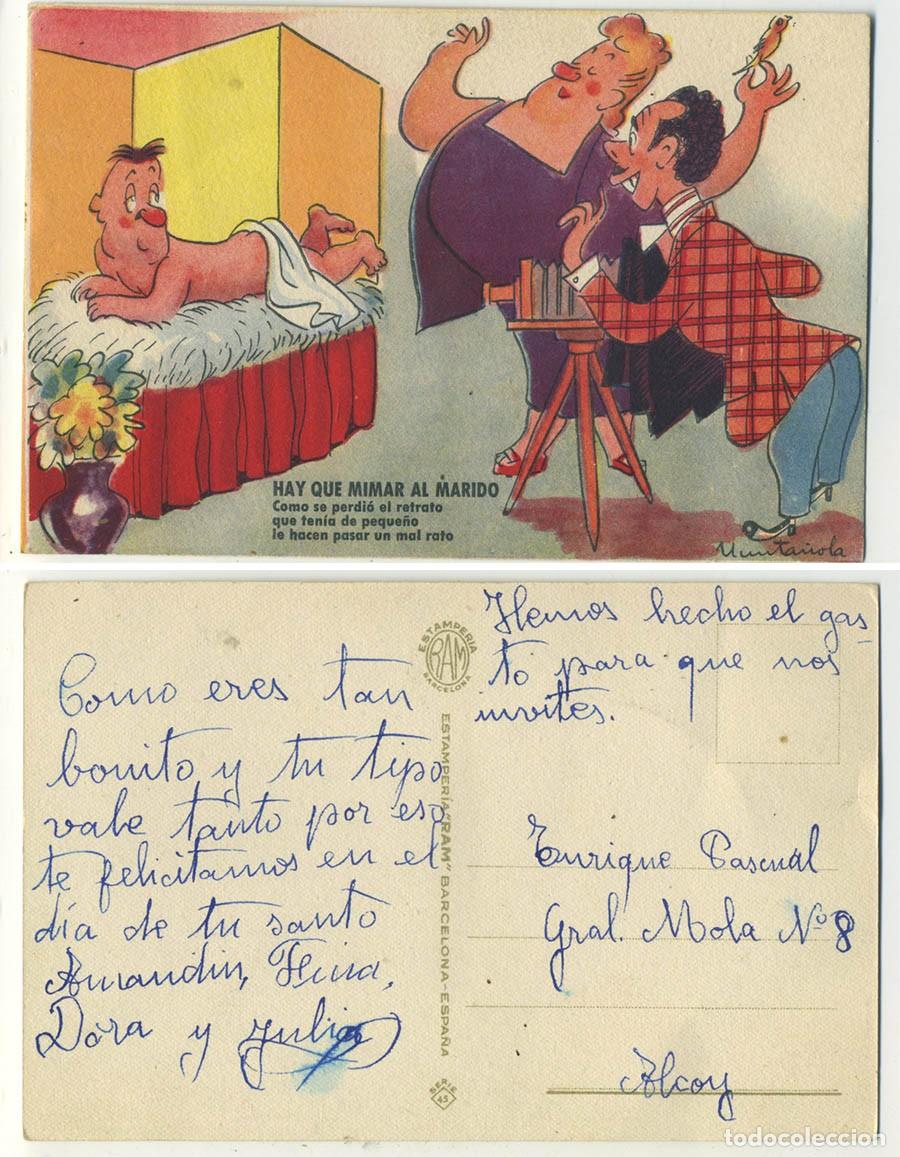 HAY QUE MIMAR AL MARIDO
Como se perdió el retrato
que tenía de pequeño
le hacen pasar un mal rato
Muntañola
Como eres tan
bonito y tu tipo
vale tanto por eso
te felicitamos en el
día de tu santo
Amandin, Fina,
Dora y Julia
ESTAMPERIA
RAM
BARCELONA
ESTAMPERÍA "RAM" BARCELONA-ESPAÑA
SERIE
45
Hemos hecho el gas-
to para que nos
invites.
Enrique Pascual
Gral. Mola Nº 8
Alcoy
todocoleccion